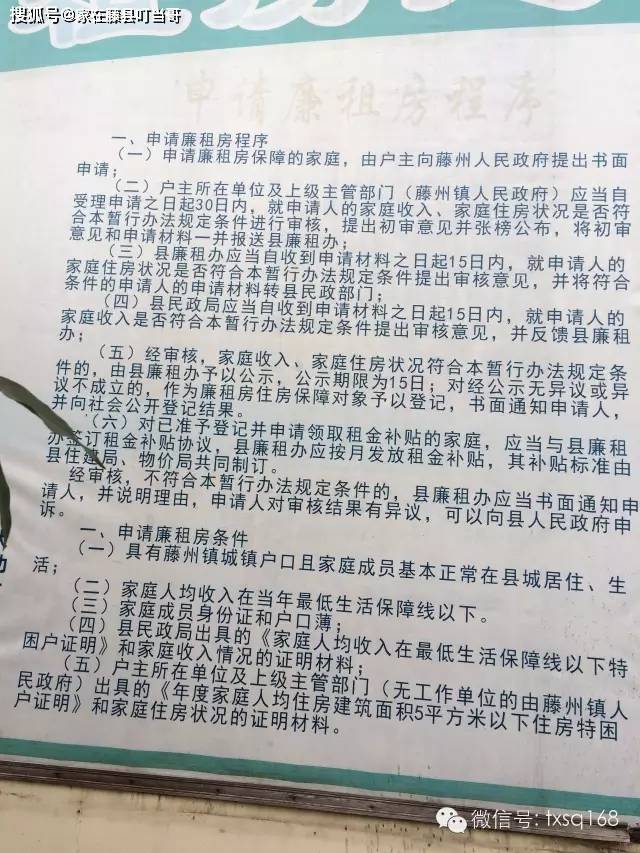 搜狐号@家在藤县叮当哥
申请廉租房程序
一、申请廉租房程序
(一)申请廉租房保障的家庭，由户主向藤州人民政府提出书面
申请；
(二)户主所在单位及上级主管部门（藤州镇人民政府）应当自
受理申请之日起30日内，就申请人的家庭收入、家庭住房状况是否符
合本暂行办法规定条件进行审核，提出初审意见并张榜公布，将初审
意见和申请材料一并报送县廉租办；
(三)县廉租办应当自收到申请材料之日起15日内，就申请人的
家庭住房状况是否符合本暂行办法规定条件提出审核意见，并将符合
条件的申请人的申请材料转县民政部门；
(四)县民政局应当自收到申请材料之日起15日内，就申请人的
家庭收入是否符合本暂行办法规定条件提出审核意见，并反馈县廉租
办；
(五)经审核，家庭收入、家庭住房状况符合本暂行办法规定条
件的，由县廉租办予以公示，公示期限为15日；对经公示无异议或异
议不成立的，作为廉租房住房保障对象予以登记，书面通知申请人，
并向社会公开登记结果。
(六)对已准予登记并申请领取租金补贴的家庭，应当与县廉租
办签订租金补贴协议，县廉租办应按月发放租金补贴，其补贴标准由
县住建局、物价局共同制订。
经审核，不符合本暂行办法规定条件的，县廉租办应当书面通知
申请人，并说明理由，申请人对审核结果有异议，可以向县人民政府申
诉。
一、申请廉租房条件
(一)具有藤州镇城镇户口且家庭成员基本正常在县城居住、生
活；
(二)家庭人均收入在当年最低生活保障线以下。
(三)家庭成员身份证和户口薄；
(四)县民政局出具的《家庭人均收入在最低生活保障线以下特
困户证明》和家庭收入情况的证明材料；
(五)户主所在单位及上级主管部门（无工作单位的由藤州镇人
民政府）出具的《年度家庭人均住房建筑面积5平方米以下住房特困
户证明》和家庭住房状况的证明材料。
微信号: txsq168